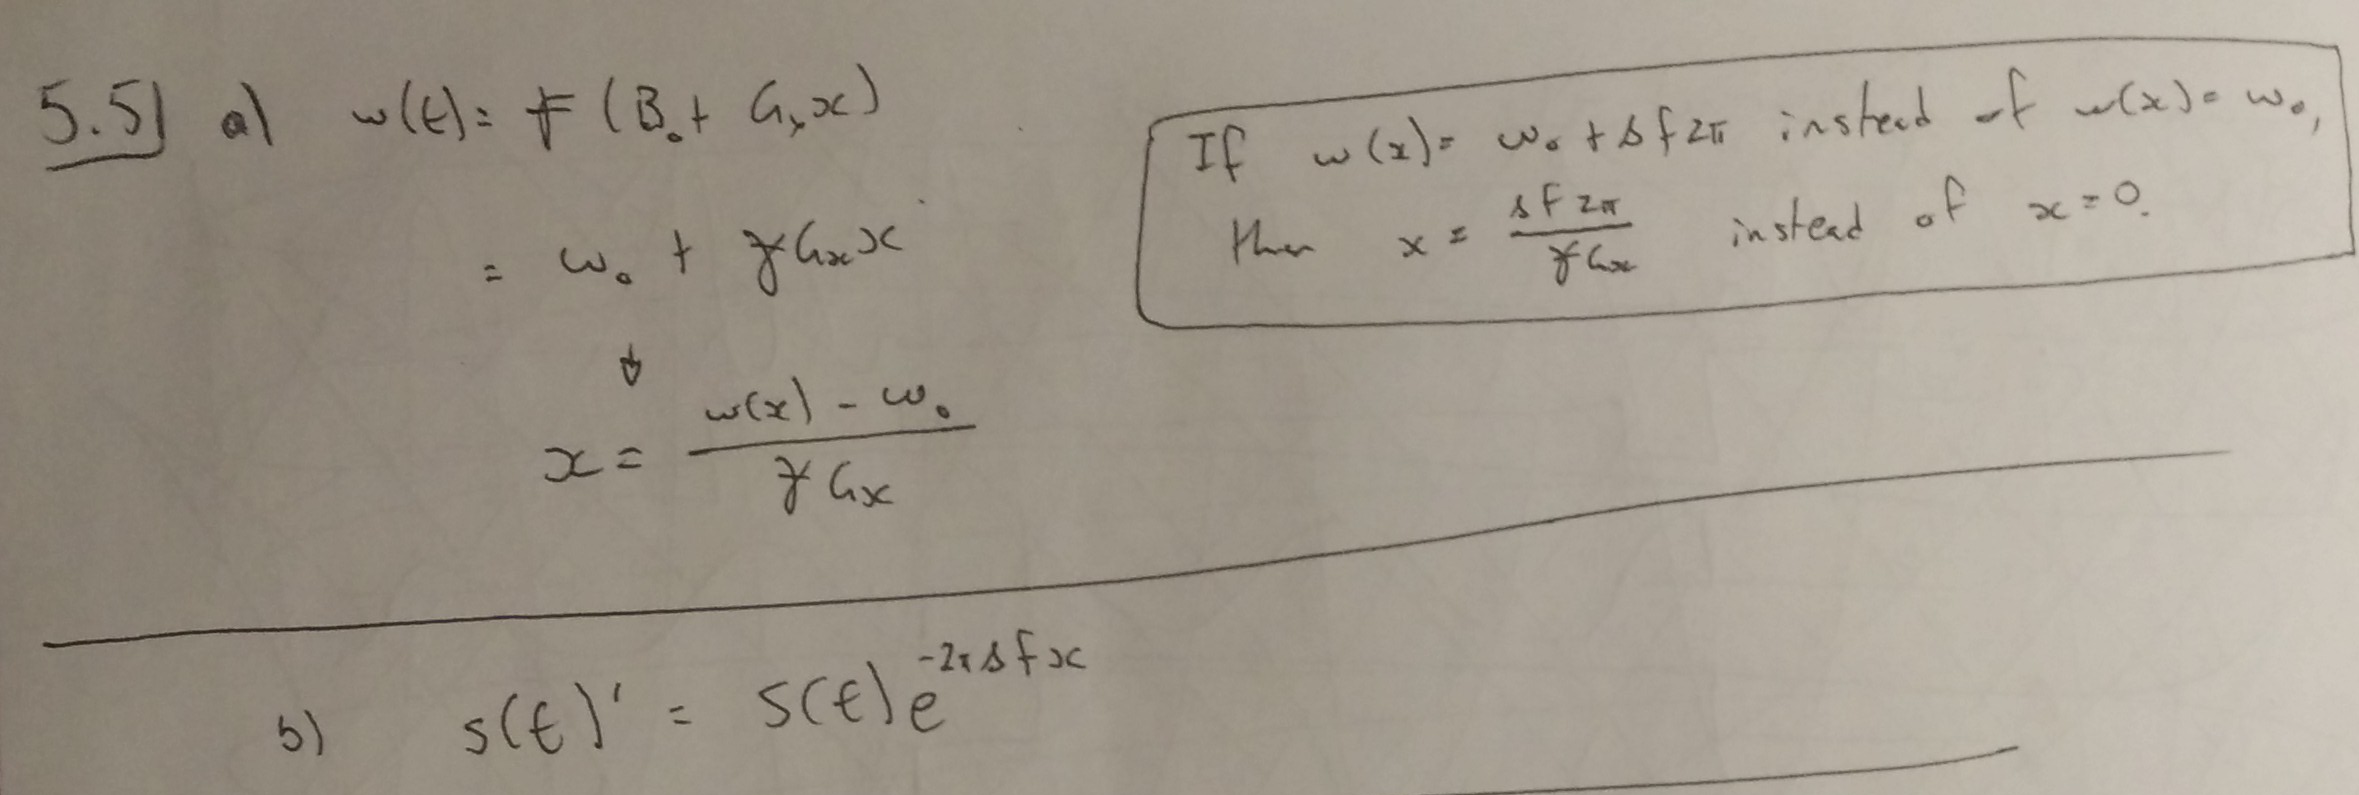 5.5) a) w(t) = γ (B₀ + Gₓx)
= ω₀ + γGₓx
↓
x = (w(x) - ω₀) / (γGₓ)
If w(x) = ω₀ + Δf2π instead of w(x) = ω₀,
then x = (Δf2π) / (γGₓ) instead of x = 0.
b) s(t)' = s(t)e^(-2πΔfx)